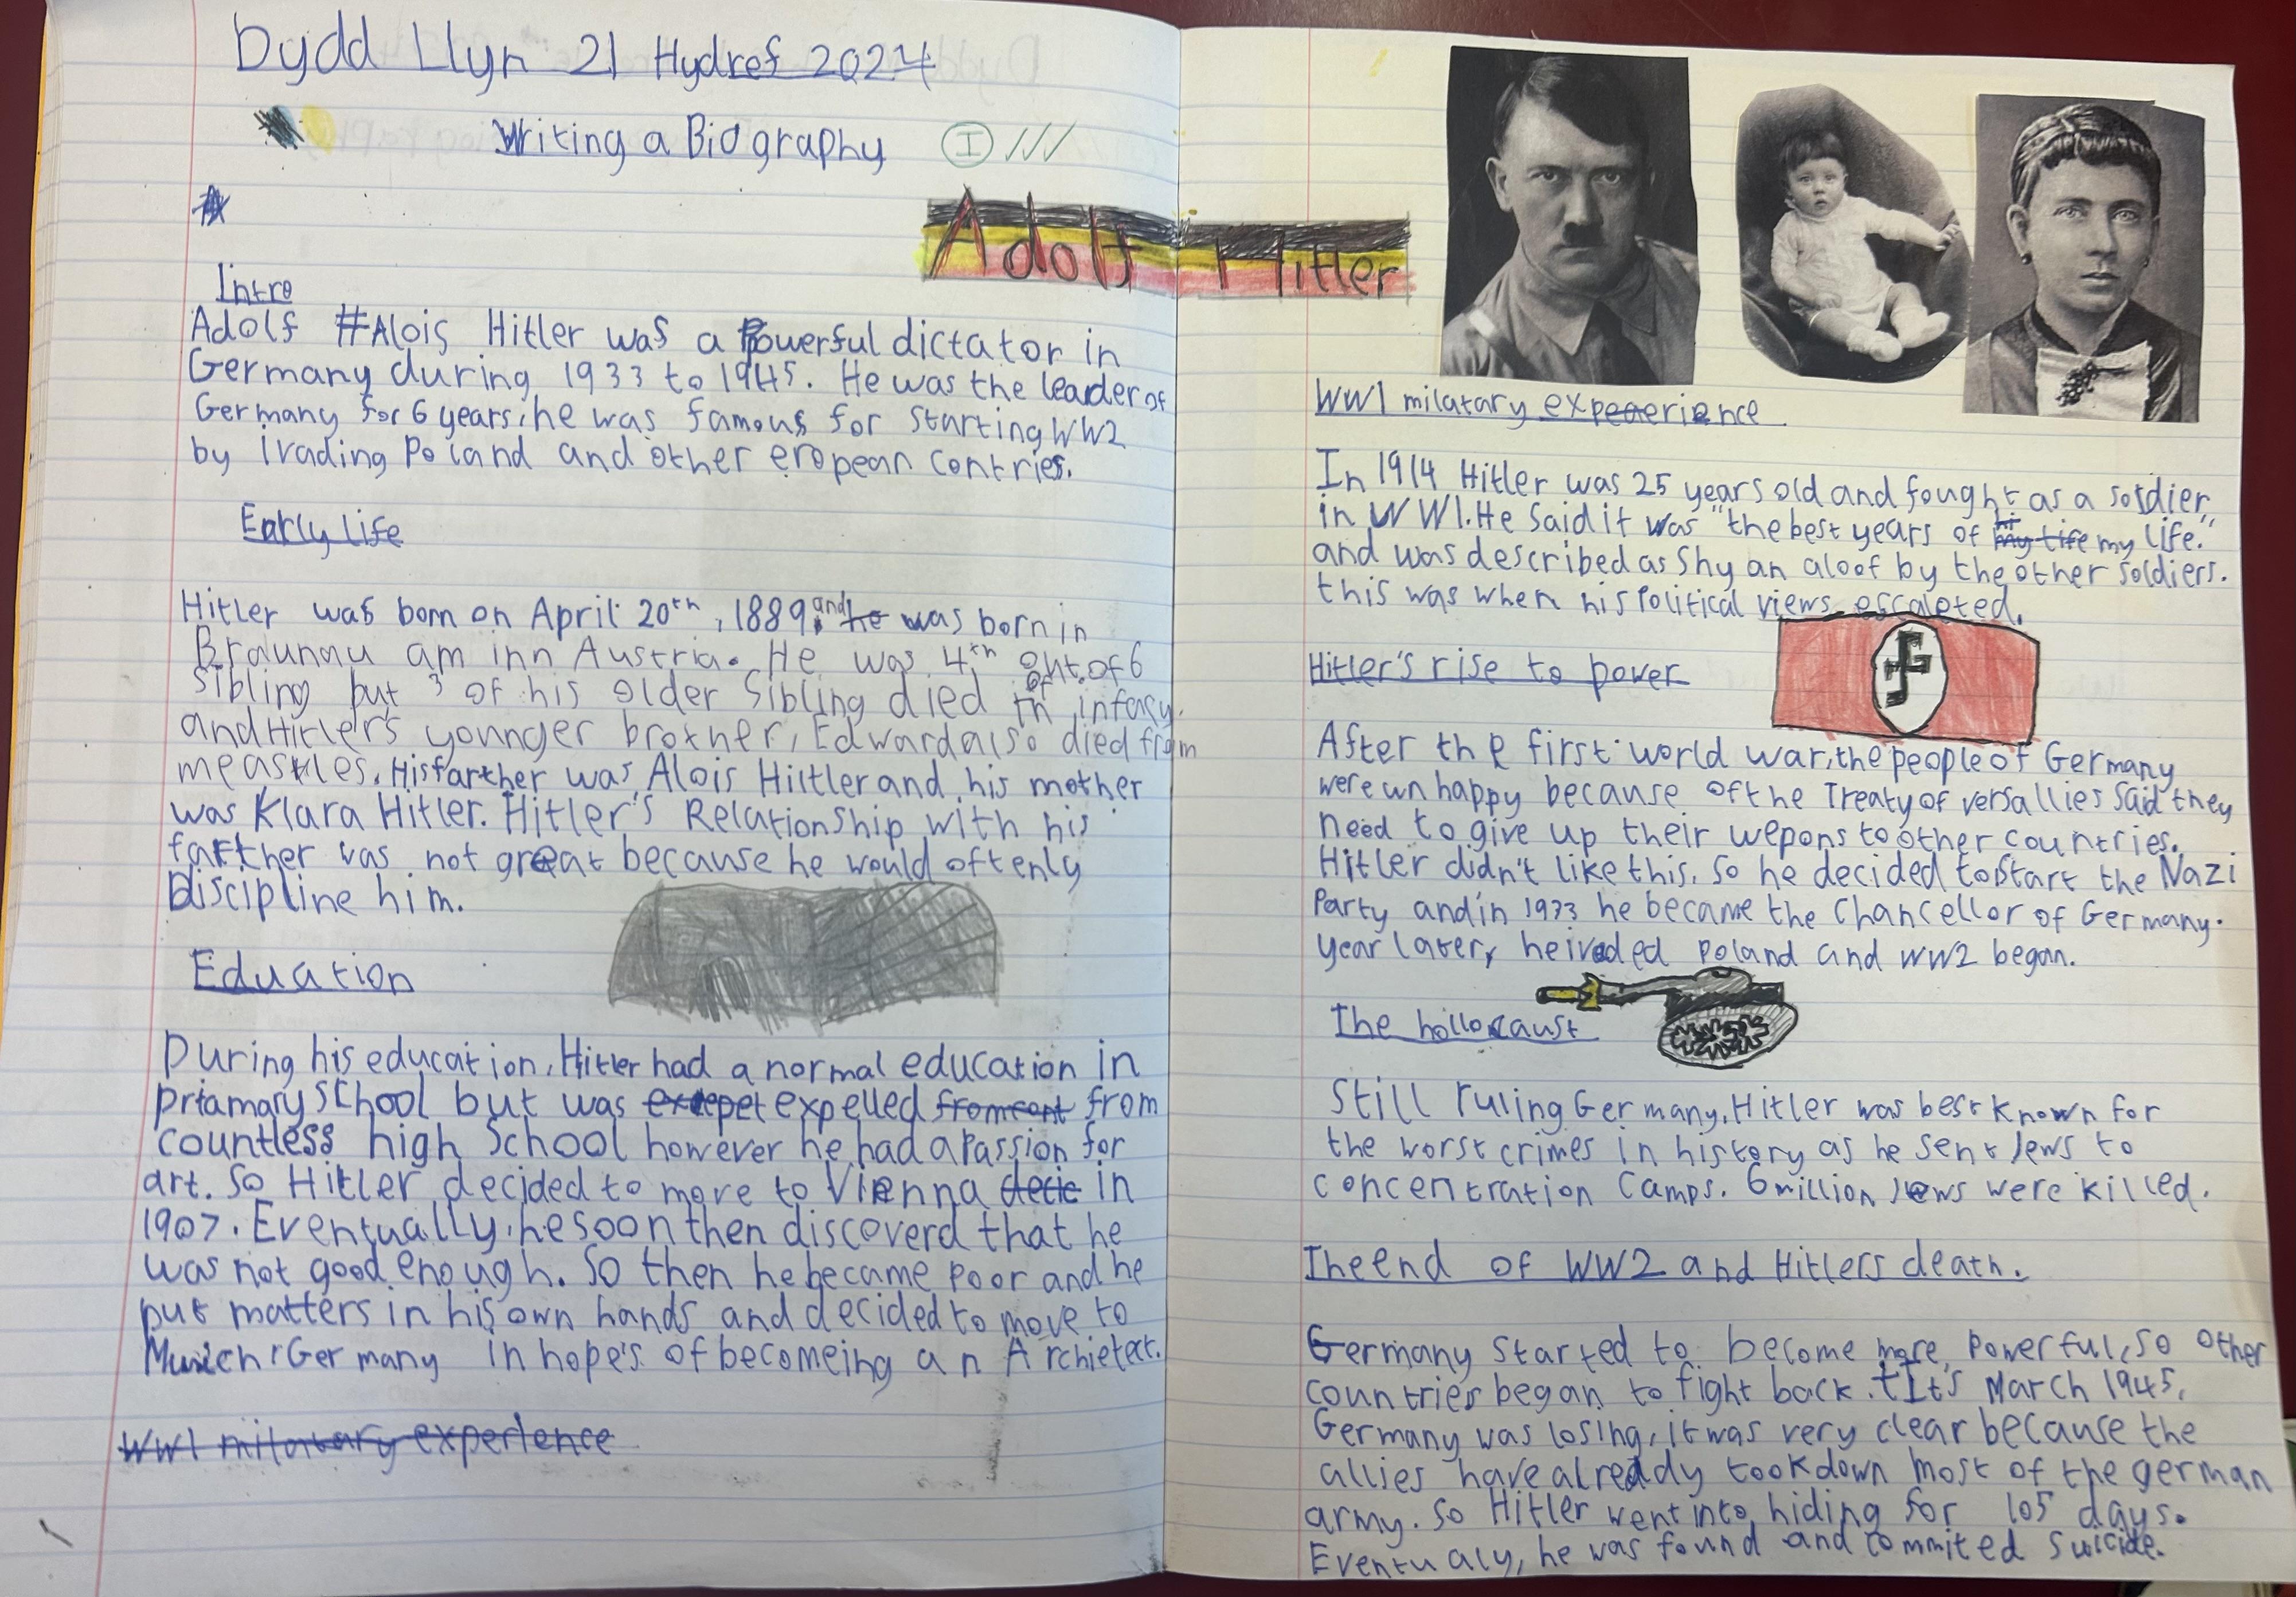 Dydd Llyn 21 Hydref 2024
Writing a Biography
I
Adolf Hitler
Intro
Adolf Alois Hitler was a Powerful dictator in
Germany during 1933 to 1945. He was the leader of
Germany for 6 years, he was famous for starting WW2
by ivading Poland and other eropean contries.
Early life
Hitler was born on April 20th, 1889, and was born in
Braunau am inn Austria. He was 4th out of 6
sibling but 3 of his older sibling died in infacy.
and Hitler's younger brother, Edward also died from
measles. His farther was Alois Hiltler and his mother
was Klara Hitler. Hitler's Relationship with his
farther was not great because he would oftenly
Discipline him.
Eduation
During his education, Hitler had a normal education in
priamary school but was expelled from
countless high School however he had a Passion for
art. So Hitler decided to move to Vienna in
1907. Eventually, he soon then discoverd that he
was not good enough. So then he became poor and he
put matters in his own hands and decided to move to
Munich, Germany in hope's of becomeing an Archietect.
WW1 milatary experience
WW1 milatary experience
In 1914 Hitler was 25 years old and fought as a soldier
in WW1. He said it was "the best years of my life."
and was described as shy an aloof by the other soldiers.
this was when his Political views escaleted.
Hitler's rise to power
After the first world war, the people of Germany
were unhappy because of the Treaty of versallies said they
need to give up their wepons to other countries.
Hitler didn't like this. So he decided to start the Nazi
Party and in 1933 he became the Chancellor of Germany.
year later, he ivaded Poland and WW2 began.
The hollocaust
Still ruling Germany, Hitler was best known for
the worst crimes in history as he sent Jews to
concentration Camps. 6 million Jews were killed.
The end of WW2 and Hitlers death.
Germany started to become more Powerful, so other
countries began to fight back. It's March 1945,
Germany was losing, it was very clear because the
allies have already took down most of the german
army. So Hitler went into hiding for 105 days.
Eventualy, he was found and commited suicide.